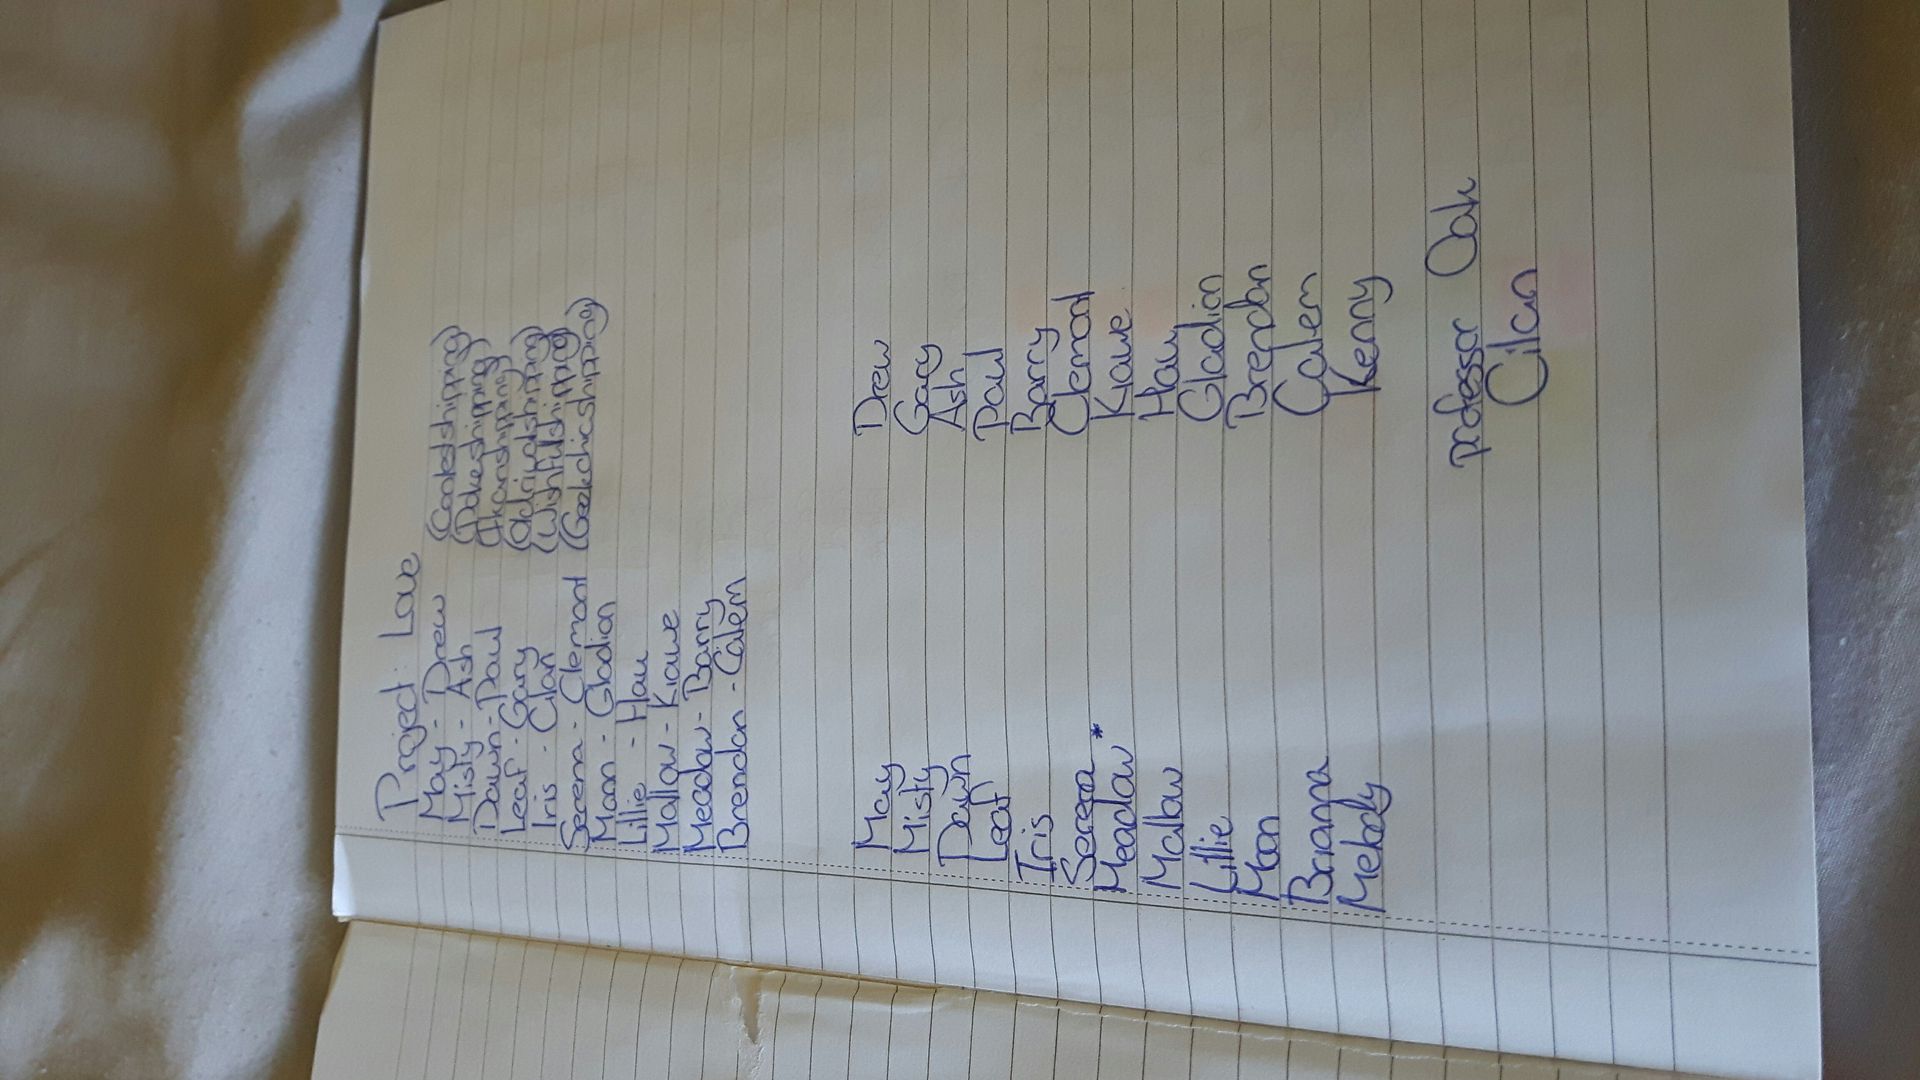 Project: Love
May - Drew (Contestshipping)
Misty - Ash (Pokeshipping)
Dawn - Paul (Ikarishipping)
Leaf - Gary (Oldrivalshipping)
Iris - Cilan (Wishfulshipping)
Serena - Clemont (Geekchicshipping)
Moon - Gladion
Lillie - Hau
Mallow - Kiawe
Meadow - Barry
Brendan - Calem
May Drew
Misty Gary
Dawn Ash
Leaf Paul
Iris Barry
Serena Clemont
Meadow* Kiawe
Mallow Hau
Lillie Gladion
Moon Brendan
Brianna Calem
Melody Kenny
professor Oak
Cilan